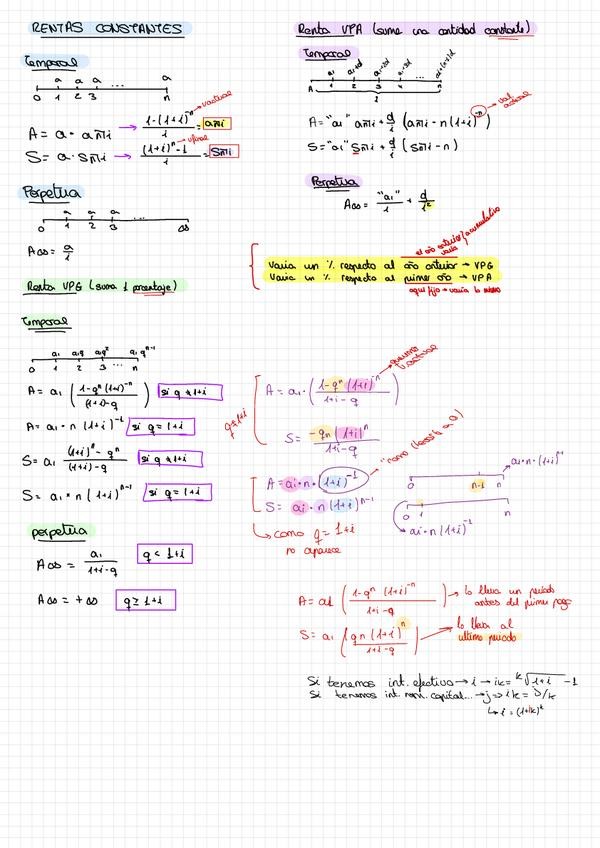 RENTAS CONSTANTES
Temporal
a a a ... a
0 1 2 3 n
A = a · an̅i → (1-(1+i)^-n)/i = an̅i
S = a · Sn̅i → ((1+i)^n - 1)/i = Sn̅i
Perpetua
a a a ...
0 1 2 3 ∞
A∞ = a/i
Renta VPG (suma 1 porcentaje)
Temporal
a₁ a₁q a₁q² a₁q^n-1
0 1 2 3 ... n
A = a₁ ((1-q^n (1+i)^-n)/((1+i)-q)) si q ≠ 1+i
A = a₁ · n (1+i)^-1 si q = 1+i
S = a₁ ((1+i)^n - q^n)/((1+i)-q) si q ≠ 1+i
S = a₁ · n (1+i)^n-1 si q = 1+i
perpetua
A∞ = a₁/(1+i-q) q < 1+i
A∞ = +∞ q ≥ 1+i
Renta VPA (sume una cantidad constante)
Temporal
a₁ a₁+d a₁+2d a₁+3d ... a₁+(n-1)d
A
val actual
A = "a₁" an̅i + d/i (an̅i - n(1+i)^-n)
S = "a₁" Sn̅i + d/i (Sn̅i - n)
Perpetua
A∞ = "a₁"/i + d/i²
el año anterior varía
acumulativo
Varia un % respecto al año anterior → VPG
Varia un % respecto al primer año → VPA
aquí fijo → varía lo mismo
q ≠ 1+i
A = a₁ · ((1-q^n (1+i)^-n)/(1+i-q))
S = (-qn (1+i)^n)/(1+i-q)
A = ai · n · (1+i)^-1
S = ai · n (1+i)^n-1
↳ como q = 1+i
no aparece
a₁ · n · (1+i)^n-1
0 n-1 n
0 1 n
ai · n (1+i)^-1
A = a1 ((1-q^n (1+i)^-n)/(1+i-q)) → lo lleva un periodo
antes del primer pago
S = a₁ ((qn (1+i)^n)/(1+i-q)) → lo lleva al
ultimo periodo
Si tenemos int. efectivo → i → ik = ᵏ√(1+i) - 1
Si tenemos int. nom. capital... → j ⇒ ik = J/k
↳ i = (1+ik)^k